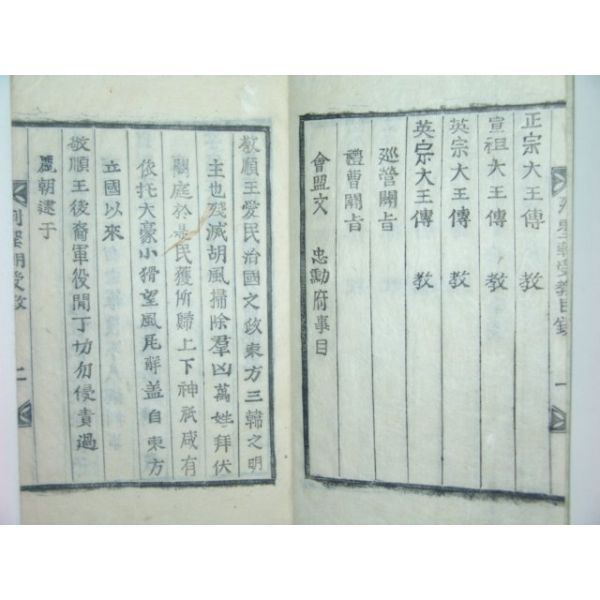 正宗大王傳 教
宣祖大王傳 教
英宗大王傳 教
英宗大王傳 教
巡營關旨
禮曹關旨
會盟文 忠勳府事目
受教目錄 一
敬順王愛民治國之政東方三韓之明
主也殘滅胡風掃除羣凶萬姓拜伏
闕庭於是民獲所歸上下神祇咸有
依托大豪小猾望風瓦解盖自東方
立國以來
敬順王後裔軍役閒丁切勿侵責過
麗朝逮于
列聖朝受教 二